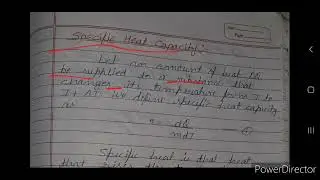 Specific Heat Capacity:
Let an amount of heat ΔQ
be supplied to a substance that
changes its temperature from T to
T + ΔT. We define specific heat capacity
as
c = dQ
mdT
Specific heat is that heat
that
PowerDirector